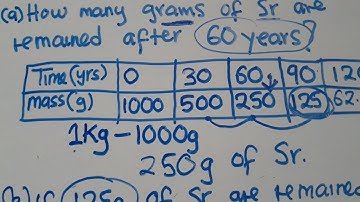 (a) How many grams of Sr are
remained after 60 years?
Time (yrs) 0 30 60 90 120
mass(g) 1000 500 250 125 62.
1Kg - 1000g
250g of Sr.
(b) If 125g of Sr are remained